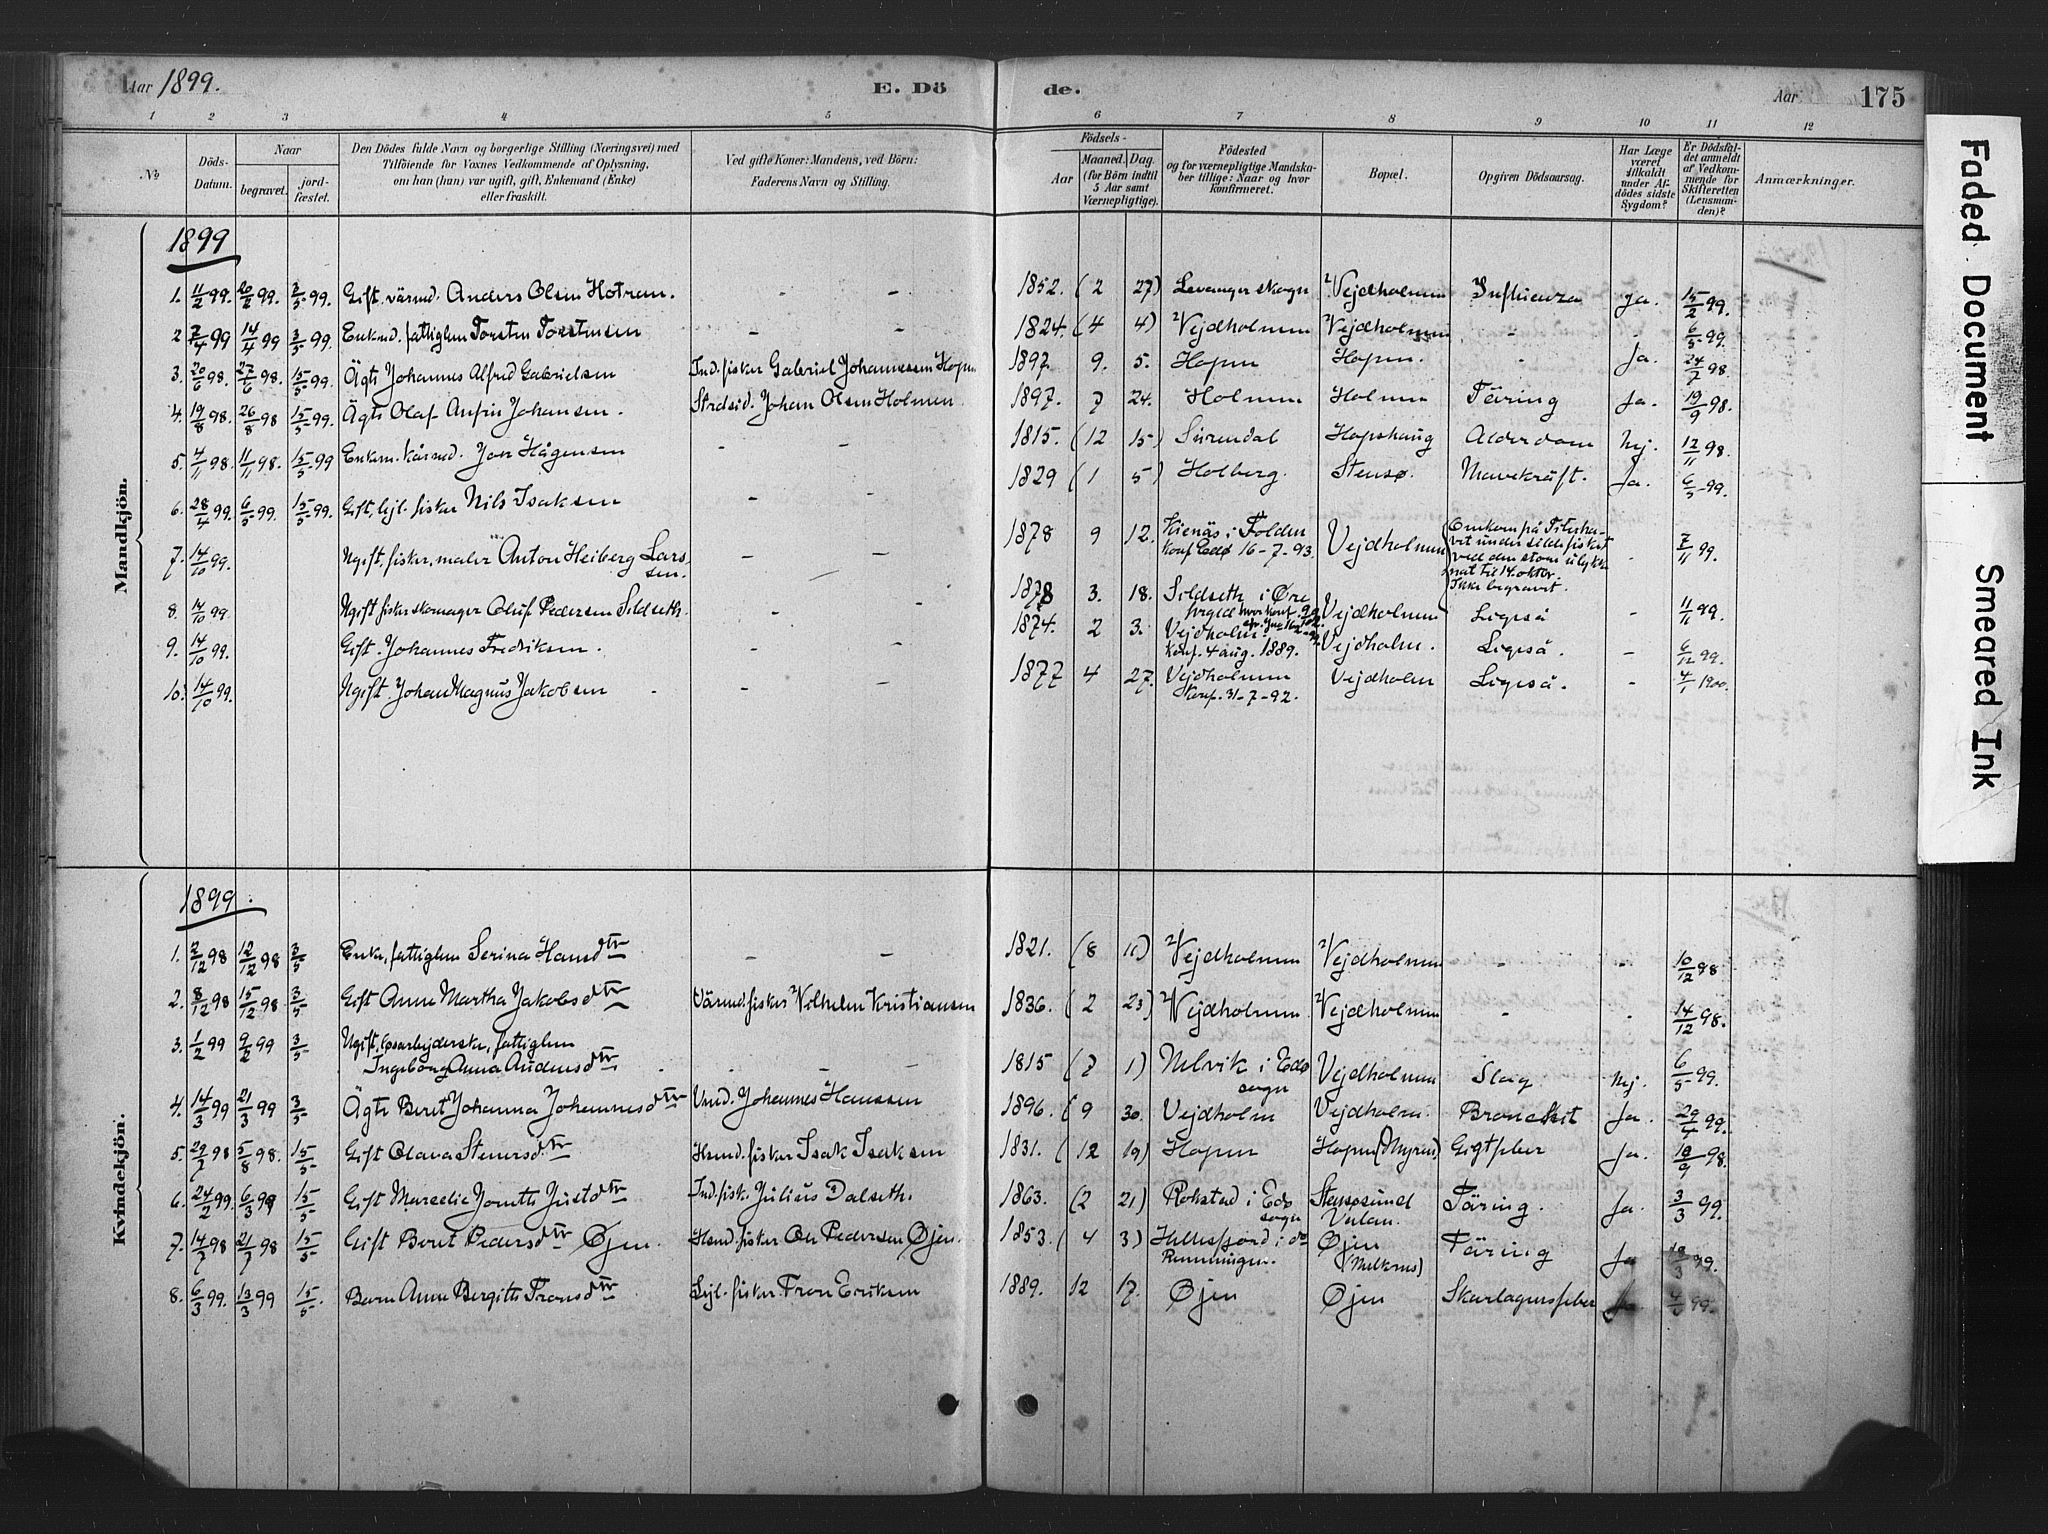 Aar 1899. E. Dö
de. Aar 175
1 2 3 4 5 6 7 8 9 10 11 12
No
Döds-Datum.
Naar
begravet.
jord-fæstet.
Den Dödes fulde Navn og borgerlige Stilling (Næringsvei) med
Tilföiende for Voxnes Vedkommende af Oplysning,
om han (hun) var ugift, gift, Enkemand (Enke)
eller fraskilt.
Ved gifte Koner: Mandens, ved Börn:
Faderens Navn og Stilling.
Födsels-
Aar
Maaned. Dag.
(for Börn indtil
5 Aar samt
Værnepligtige).
Födested
og for værnepligtige Mandska-
ber tillige: Naar og hvor
konfirmeret.
Bopæl.
Opgiven Dödsaarsag.
Har Læge
været
tilkaldt
under Af-
dödes sidste
Sygdom?
Er Dödsfal-
det anmeldt
af Vedkom-
mende for
Skifteretten
(Lensman-
den)?
Anmærkninger.
Mandkjön.
1899
1. 11/2 99. 20/2 99. 3/5 99. Gift. värmd. Anders Olsen Hotran. - - 1852. (2 27) Levanger skogn Vejdholmen Influenza Ja. 15/2 99.
2 7/4 99 14/4 99 3/5 99. Enkmd. fattiglem Torsten Torstensen - - 1824. (4 4) Vejdholmen Vejdholmen - 6/5 99.
3. 20/6 98. 27/6 98. 15/5 99. Ägte Johannes Alfred Gabrielsen Ind. fisker Gabriel Johannessen Hopen 1897. 9. 5. Hopen Hopen. - Ja. 24/7 98.
4. 19/8 98. 26/8 98 15/5 99. Ägte Olaf Anfin Johansen. Strdsid. Johan Olsen Holmen. 1897. 7 24. Holmen Holmen Täring Ja. 19/9 98.
5. 4/11 98. 11/11 98. 15/5 99 Enkem. kårmd. Joer Hågensen - - 1815. (12 15) Surendal Hopshaug Alderdom Nej. 12/11 98.
6. 28/4 99. 6/5 99. 15/5 99. Gift, lejl. fisker Nils Isaksen - - 1829 (1 5) Holberg. Stensø Mavekräft. Ja. 6/5 99.
7. 14/10 99. Ugift, fisker, maler Anton Heiberg Lars-
sen. - - 1878 9 12. Kienäs i Folden
konf. Edø 16-7-93. Vejdholmen
Omkom på Titerha-
vet under sildefisket
ved den store ulykke
nat til 14. oktbr.
Ikke begravet. - 7/11 99.
8. 14/10 99. Ugift fisker skomager Oluf Pedersen Sildseth. - - 1878 3. 18. Sildseth i Øre
prgjed Vejdholmen Ligeså - 11/11 99.
9. 14/10 99. Gift. Johannes Fredriksen. - - 1874. 2 3. Vejdholm
konf. 4 aug. 1889. Vejdholm. Ligeså. - 6/12 99.
10. 14/10 99. Ugift. Johan Magnus Jakobsen - - 1877 4 27. Vejdholmen
Konf. 31-7-92. Vejdholm Ligeså. - 4/1 1900.
Kvindekjön.
1899.
1. 2/12 98 12/12 98 3/5 Enke, fattiglem Serina Hansdtr - - 1821. (8 11) Vejdholmen Vejdholmen - - 10/12 98
2. 8/12 98 15/12 98 3/5 Gift Anne Martha Jakobsdtr Värmd. fisker Vilhelm Kristiansen 1836. (2 23) Vejdholmen Vejdholmen - - 14/12 98.
3. 1/2 99 9/2 99 3/5 Ugift, løsarbejderske, fattiglem
Ingeborg Anna Andersdtr - - 1815 (7 1) Nelvik i Edø
sogn Vejdholmen Slag Nej. 6/5 99.
4. 14/3 99 21/3 99 3/5 Ägte Beret Johanna Johannesdtr Vmd. Johannes Hanssen 1896. (9 30. Vejdholm Vejdholm. Bronckit Ja. 29/4 99.
5. 29/7 98 5/8 98. 15/5 Gift Olava Stenersdtr Hsmd. fisker Isak Isaksen 1831. (12 19) Hopen Hopen (Myren) Gigtfeber Ja. 18/9 98.
6. 24/2 99. 6/3 99 15/5 Gift Marcelie Joneth Justdtr Ind. fisk. Julius Dalseth. 1863. (2 21) Rokstad i Edø
sogn Steggøsund
Verlan. Täring. Ja. 3/3 99.
7. 14/7 98 21/7 98 15/5 Gift Beret Pedersdtr Øjen. Hsmd. fisker Ole Pedersen Øjen. 1853. (4 3) Hellesfjord i do
Renningen. Øjen
(Melkenes) Täring Ja 18/3 99.
8. 6/3 99. 13/3 99 15/5 Barn Anne Bergitte Fronsdtr Lejl. fisker Fron Eriksen 1889. 12 17. Øjen Øjen Skarlagensfeber Ja 4/6 99.
Faded Document
Smeared Ink